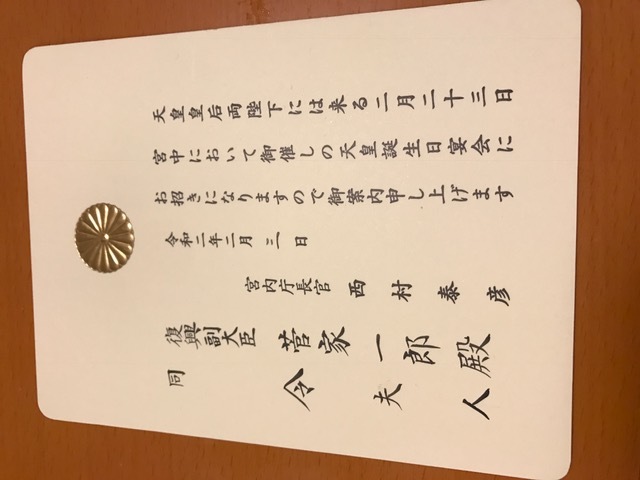 天皇皇后両陛下には来る二月二十三日
宮中において御催しの天皇誕生日宴会に
お招きになりますので御案内申し上げます
令和二年二月三日
宮内庁長官 西村泰彦
復興副大臣 菅家一郎殿
同 令夫人